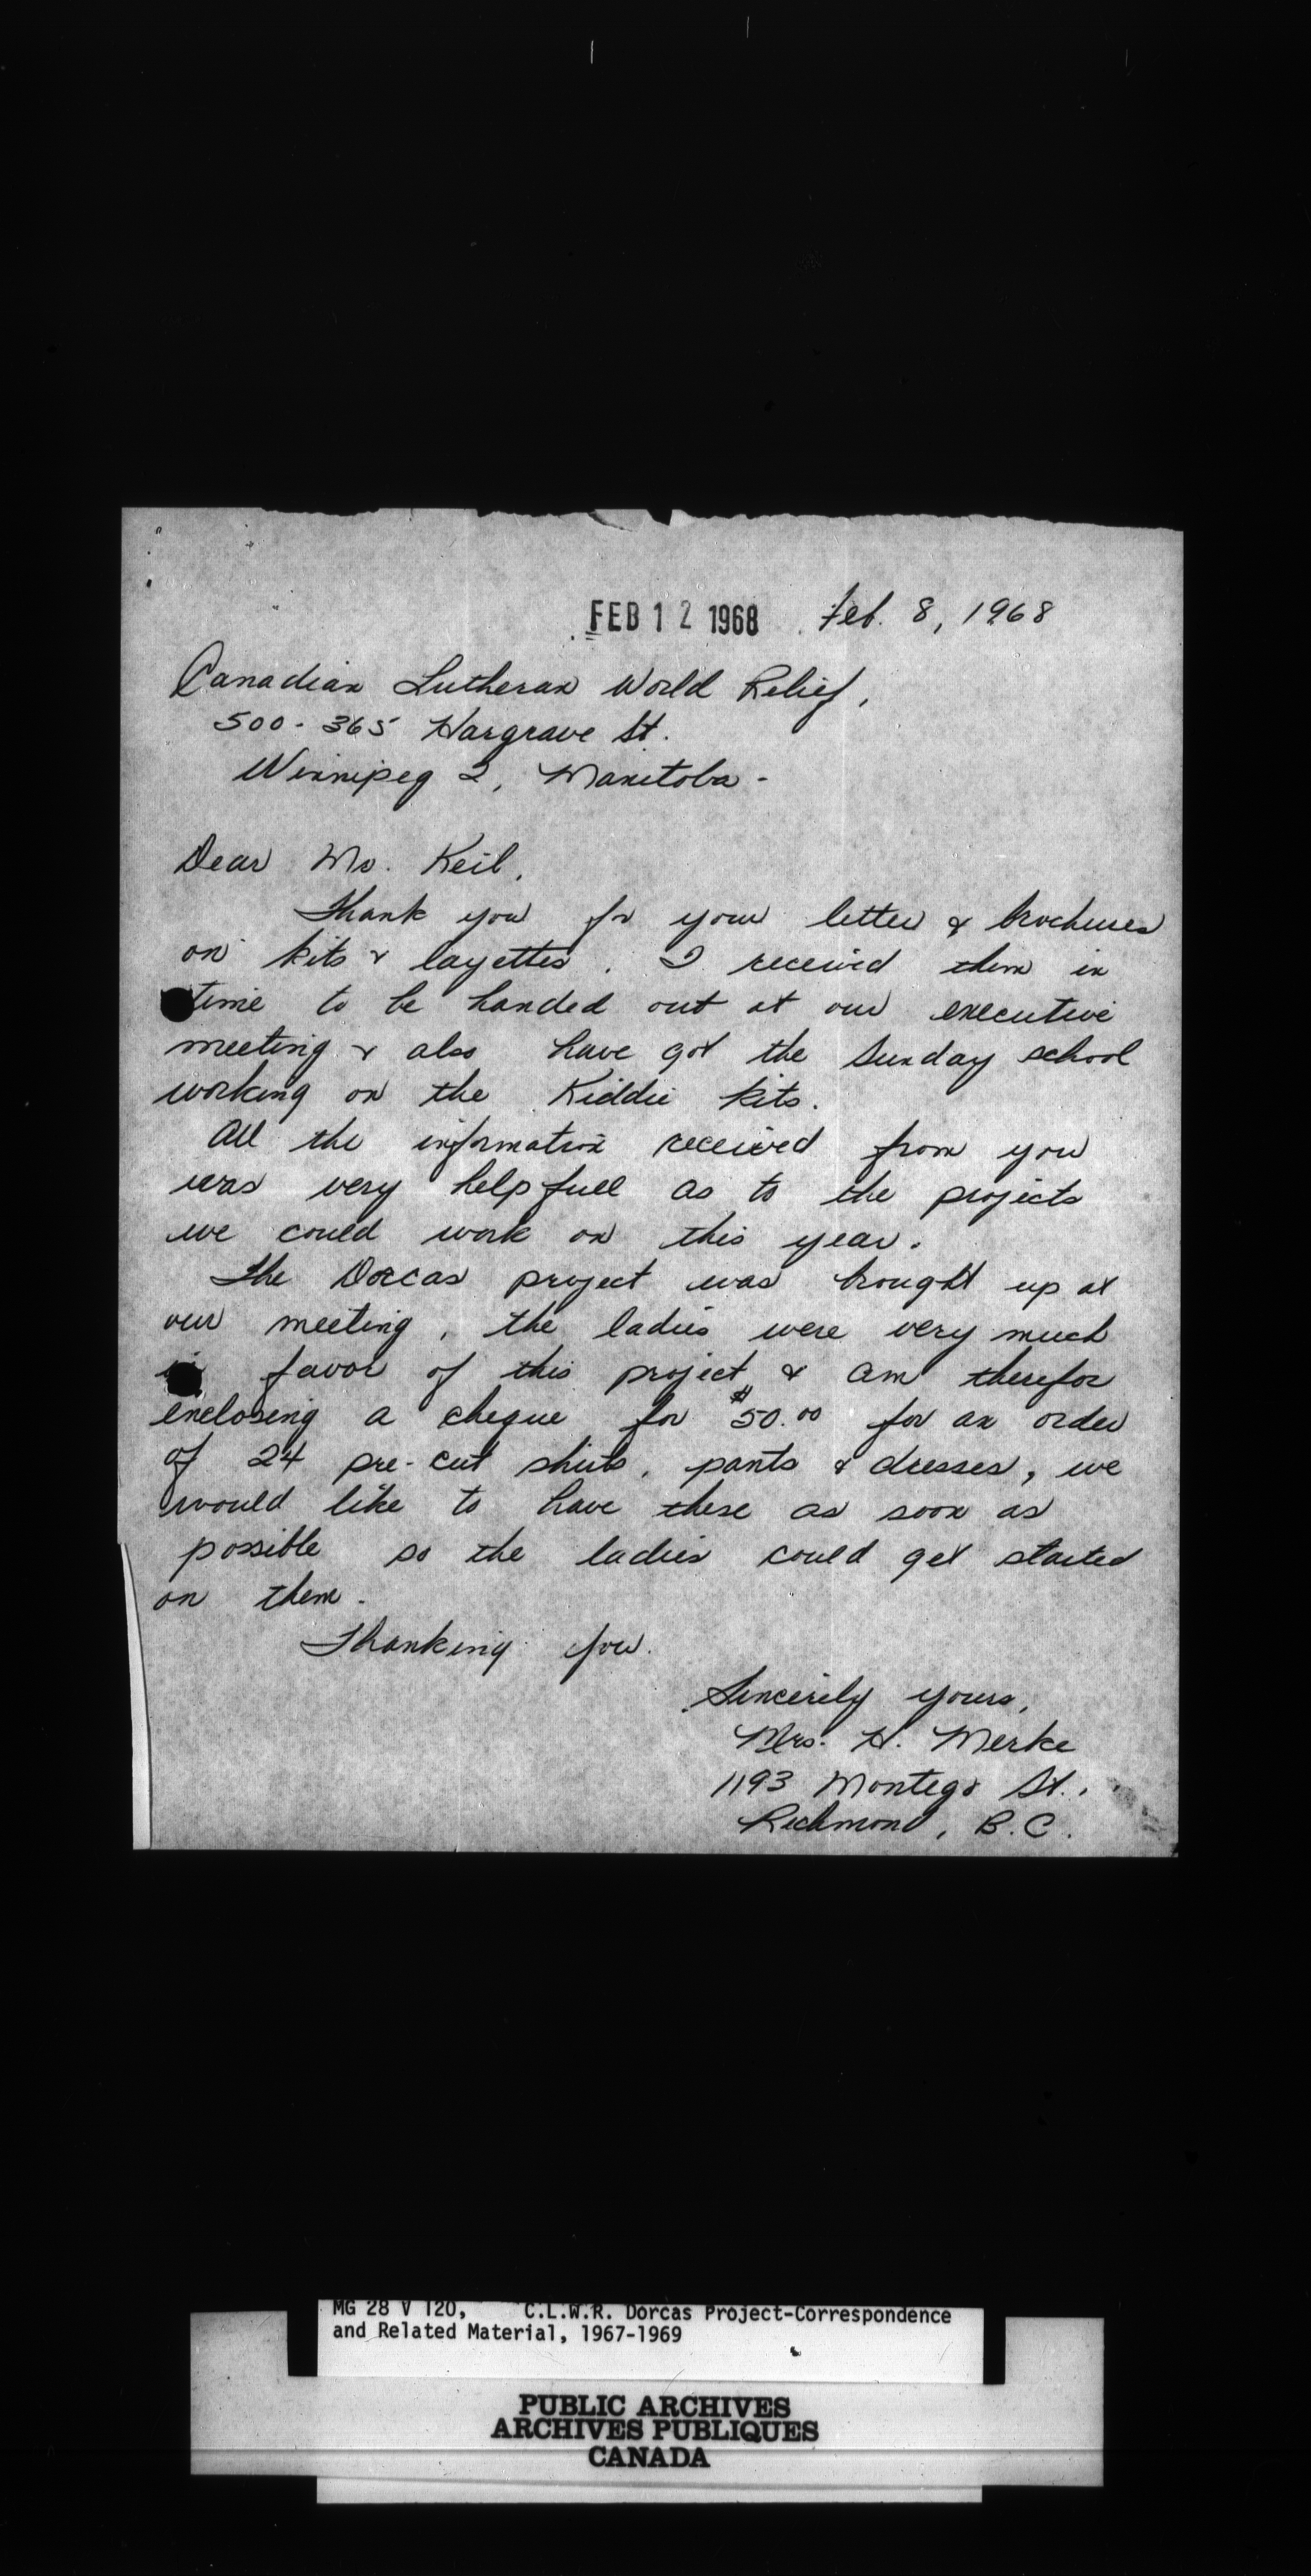 FEB 12 1968 Feb. 8, 1968
Canadian Lutheran World Relief,
500-365 Hargrave St.
Winnipeg 2, Manitoba.
Dear Mr. Keil,
Thank you for your letter & brochures
on kits & layettes. I received them in
time to be handed out at our executive
meeting & also have got the Sunday school
working on the Kiddie kits.
All the information received from you
was very helpfull as to the projects
we could work on this year.
The Dorcas project was brought up at
our meeting, the ladies were very much
in favor of this project & am therefor
enclosing a cheque for $50.00 for an order
of 24 pre-cut shirts, pants & dresses, we
would like to have these as soon as
possible so the ladies could get started
on them.
Thanking you.
Sincerely yours,
Mrs. H. Merke
1193 Montego St.,
Richmond, B.C.
MG 28 V 120, C.L.W.R. Dorcas Project-Correspondence
and Related Material, 1967-1969
PUBLIC ARCHIVES
ARCHIVES PUBLIQUES
CANADA